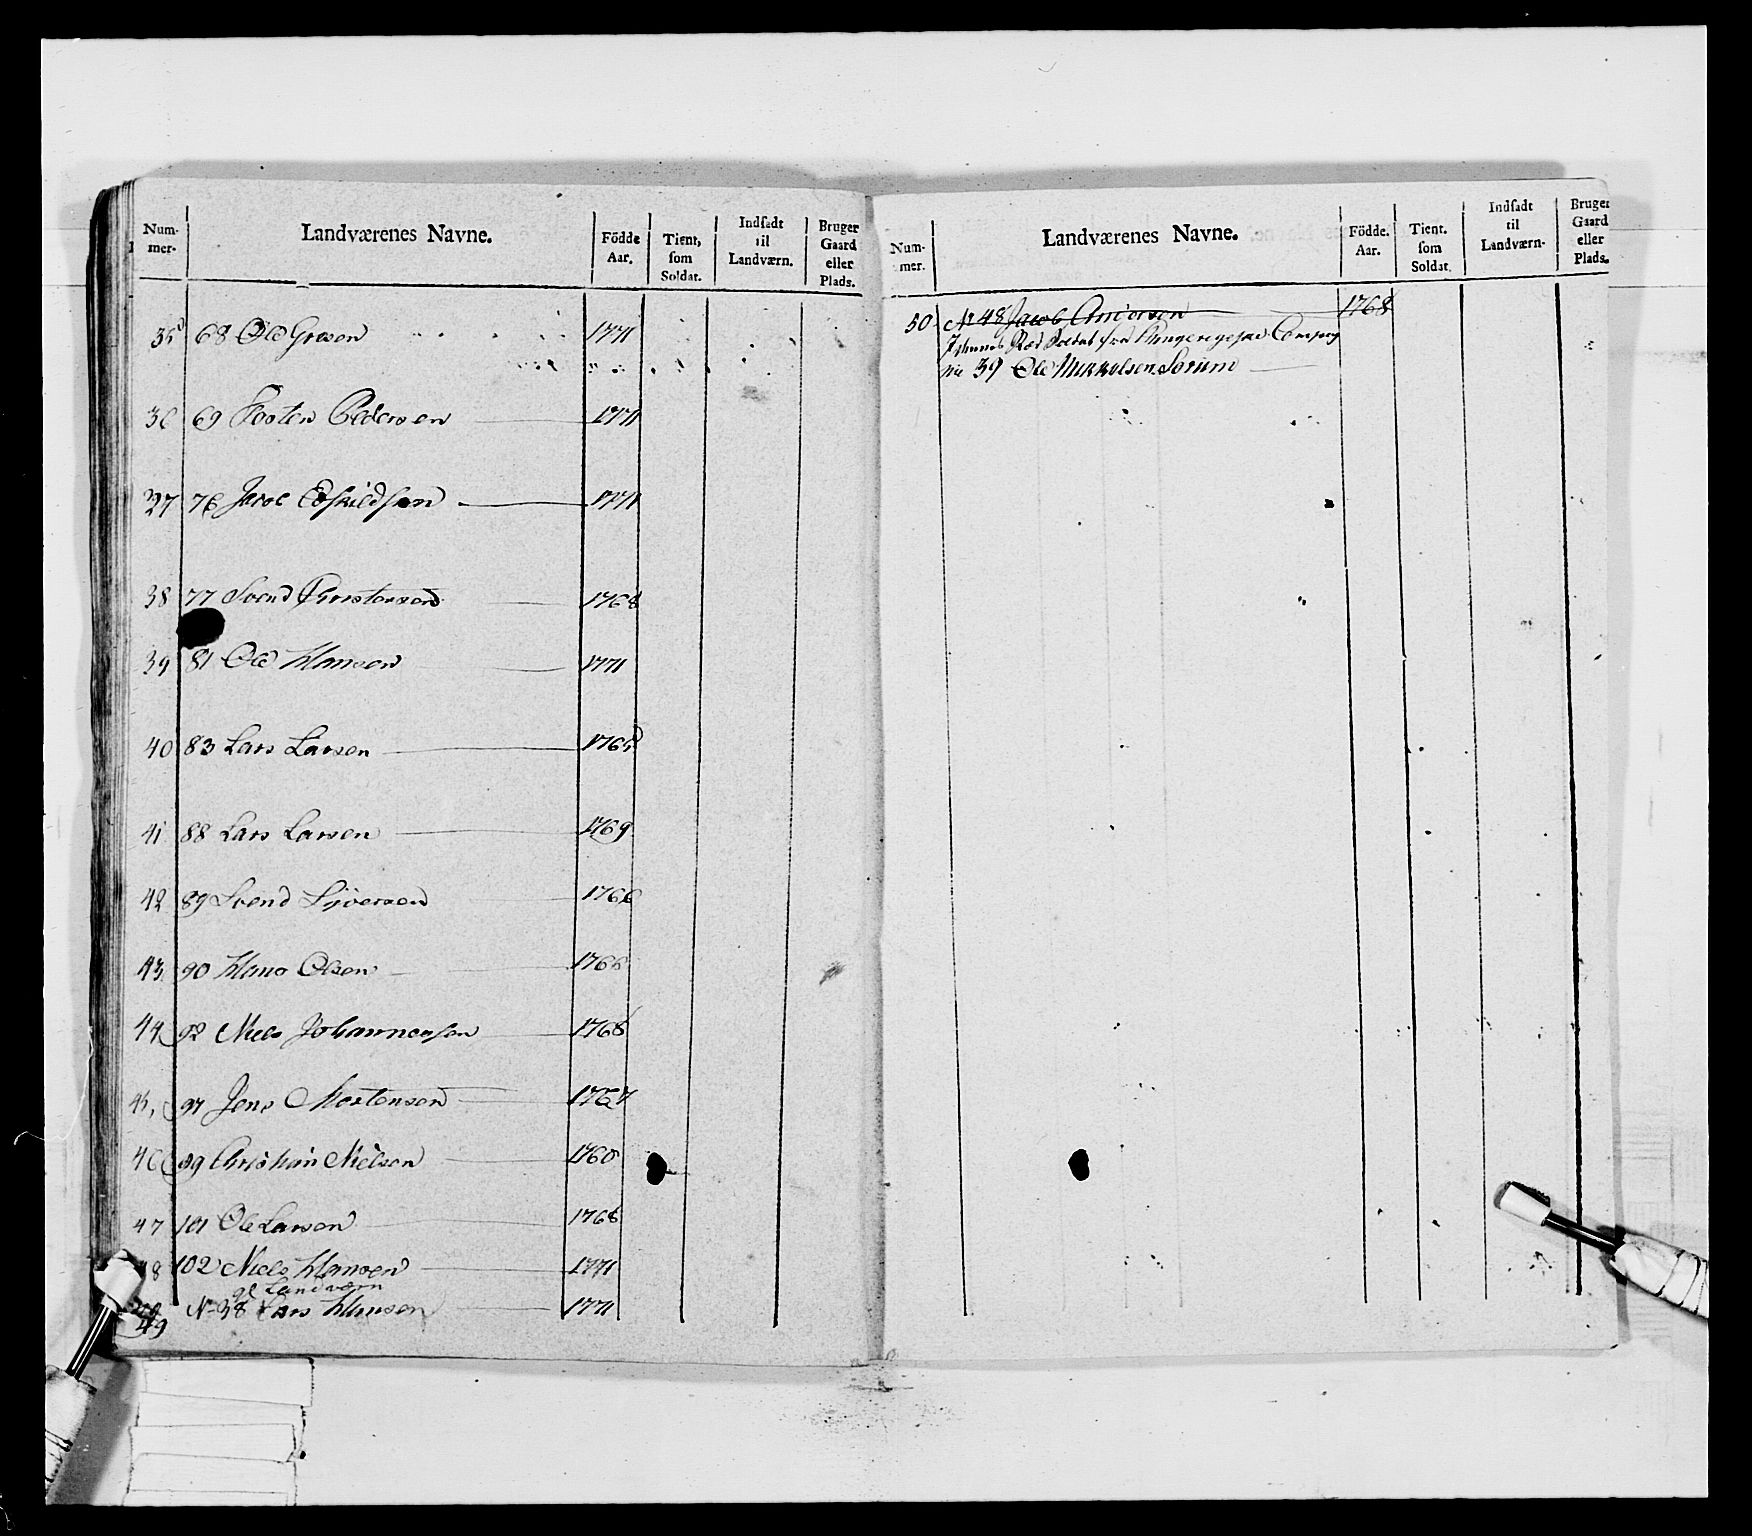 Num-
mer.
Landværenes Navne.
Födde
Aar.
Tient,
som
Soldat.
Indsadt
til
Landværn.
Bruger
Gaard
eller
Plads.
35 68 Ole 1771
36 69 Pedersen 1771
37 76 Jacob Eskildsen 1771
38 77 Svend Christensen 1768
39 81 Ole Hansen 1771
40 83 Lars Larsen 1765
41 88 Lars Larsen 1769
42 89 Svend Siversen 1766
43 90 Hans Olsen 1766
44 92 Niels Johannessen 1768
45, 97 Jens Mortensen 1767
46 89 Christian Nielsen 1760
47 101 Ole Larsen 1768
48 102 Niels Hansen 1771
gl Landværn
49 No 38 Lars Hansen 1771
Num-
mer.
Landværenes Navne.
Födde.
Aar.
Tient.
som
Soldat.
Indsadt
til
Landværn-
Bruger
Gaard
eller
Plads.
50 No 48 Jacob Andersen 1768
Soldat fra Ringerigeske Compag
nie 39 Ole Mikkelsen Sorum